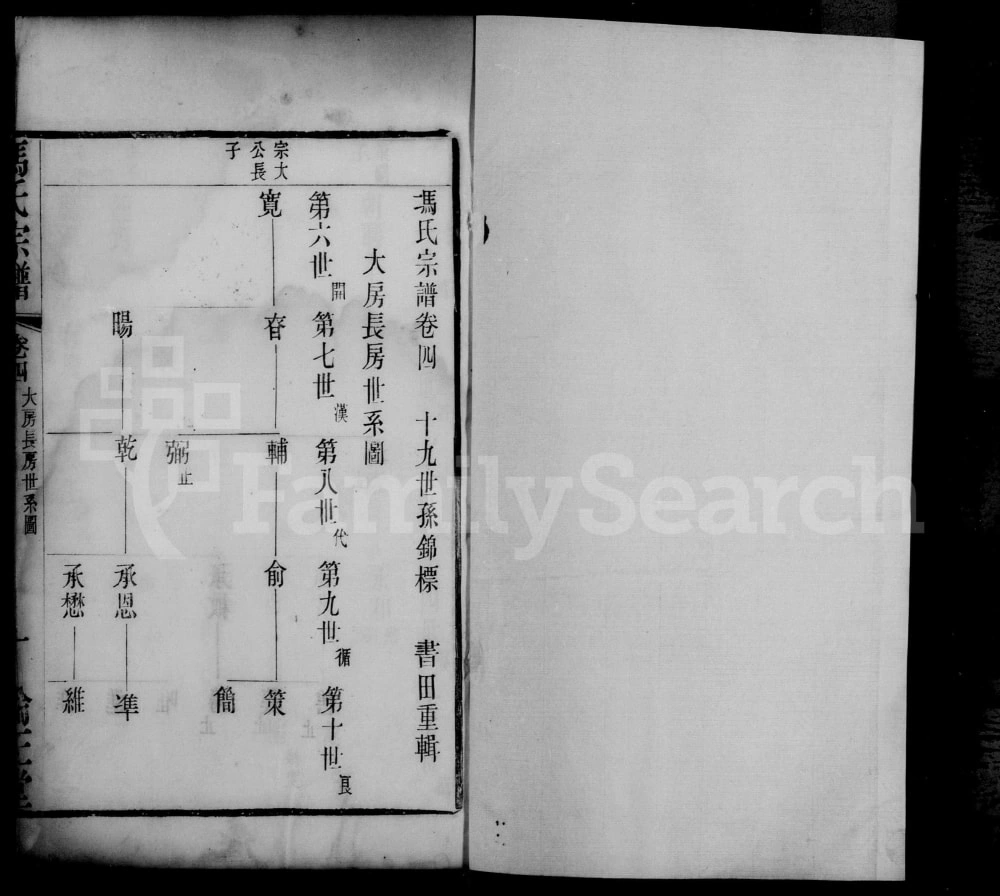 馮氏宗譜卷四 十九世孫錦標 書田重輯
大房長房世系圖
第六世 開 第七世 漢 第八世 代 第九世 循 第十世 良
宗大公長子
寬 春 輔 俞 策
簡
弼 止
暘 乾 承恩 準
承懋 維
馮氏宗譜 卷四 大房長房世系圖 一
FamilySearch